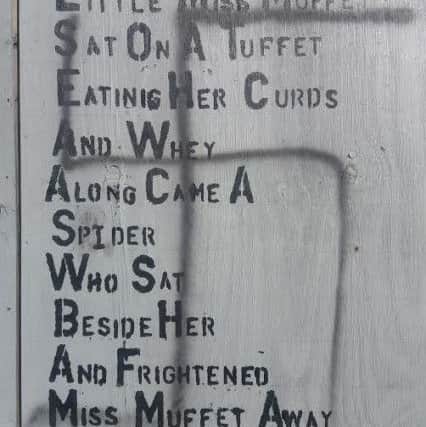 Little Miss Muffet
Sat On A Tuffet
Eatinig Her Curds
And Whey
Along Came A
Spider
Who Sat
Beside Her
And Frightened
Miss Muffet Away